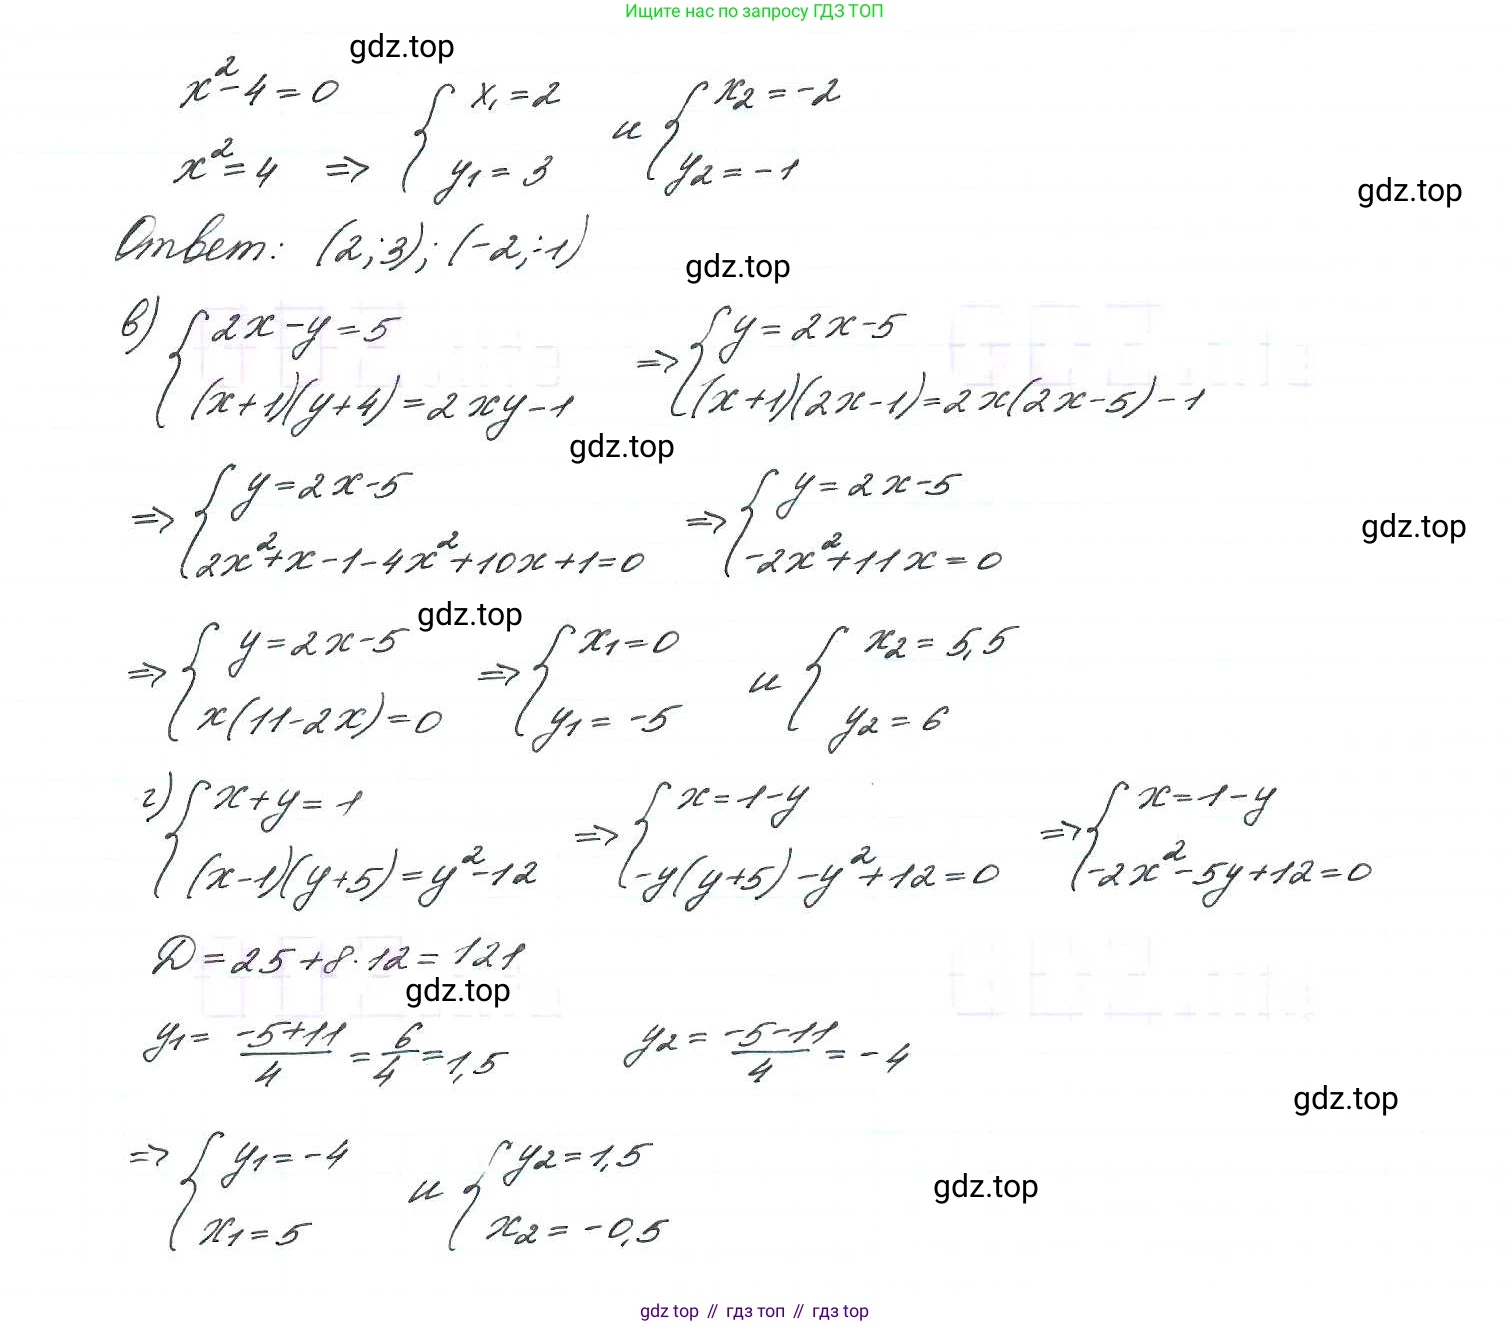 Ищите нас по запросу ГДЗ ТОП
gdz.top
x² - 4 = 0
x² = 4 => { x₁ = 2 y₁ = 3 и { x₂ = -2 y₂ = -1
gdz.top
Ответ: (2; 3); (-2; -1)
gdz.top
в) { 2x - y = 5 (x+1)(y+4) = 2xy - 1 => { y = 2x - 5 (x+1)(2x-1) = 2x(2x-5) - 1
gdz.top
=> { y = 2x - 5 2x² + x - 1 - 4x² + 10x + 1 = 0 => { y = 2x - 5 -2x² + 11x = 0
gdz.top
gdz.top
=> { y = 2x - 5 x(11 - 2x) = 0 => { x₁ = 0 y₁ = -5 и { x₂ = 5,5 y₂ = 6
г) { x + y = 1 (x-1)(y+5) = y² - 12 => { x = 1 - y -y(y+5) - y² + 12 = 0 => { x = 1 - y -2x² - 5y + 12 = 0
D = 25 + 8·12 = 121
gdz.top
y₁ = (-5+11)/4 = 6/4 = 1,5 y₂ = (-5-11)/4 = -4
gdz.top
=> { y₁ = -4 x₁ = 5 и { y₂ = 1,5 x₂ = -0,5
gdz.top
gdz top // гдз топ // гдз top